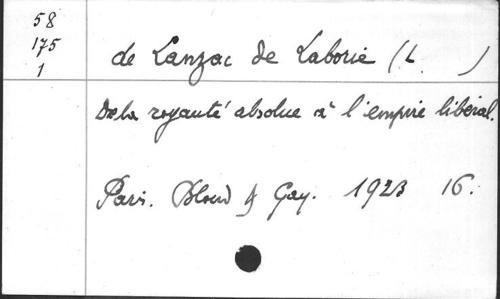 58
175
1
de Lanzac de Laborie (L )
De la royauté absolue à l'empire libéral.
Paris. Bloud & Gay. 1923 16.